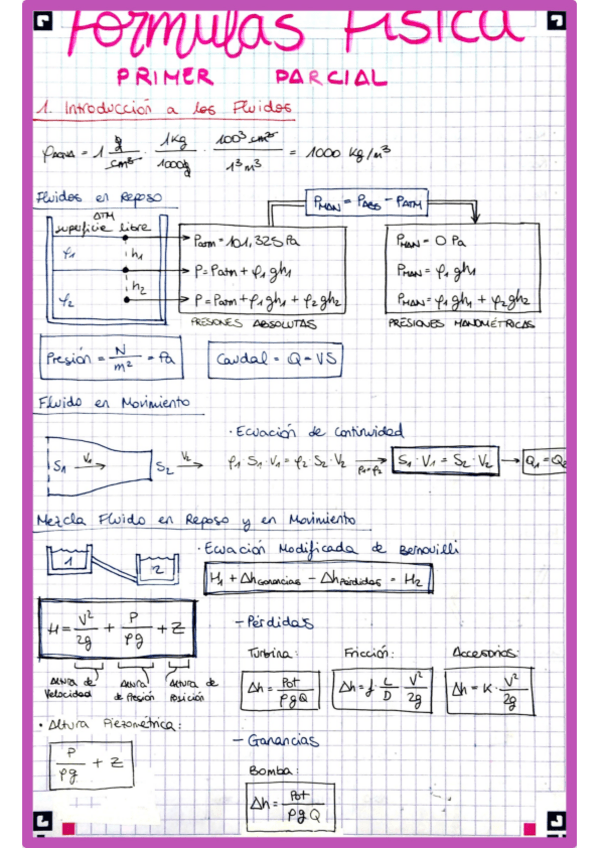 Fórmulas Física
PRIMER PARCIAL
1. Introducción a los Fluidos
ρAGUA = 1 g/cm³ · 1Kg/1000g · 100³ cm³/1³ m³ = 1000 Kg/m³
Fluidos en Reposo
PMAN = PABS - PATM
ATM
superficie libre
ρ1
h1
ρ2
h2
Patm = 101,325 Pa
P = Patm + ρ1gh1
P = Patm + ρ1gh1 + ρ2gh2
PRESIONES ABSOLUTAS
PMAN = 0 Pa
PMAN = ρ1gh1
PMAN = ρ1gh1 + ρ2gh2
PRESIONES MANOMÉTRICAS
Presión = N/m² = Pa
Caudal = Q = VS
Fluido en Movimiento
· Ecuación de Continuidad
S1 V1 S2 V2
ρ1·S1·V1 = ρ2·S2·V2 → ρ1=ρ2 S1·V1 = S2·V2 → Q1 = Q2
Mezcla Fluido en Reposo y en Movimiento
1
2
· Ecuación Modificada de Bernoulli
H1 + Δhganancias - Δhpérdidas = H2
H = V²/2g + P/ρg + Z
Altura de Velocidad
Altura de Presión
Altura de Posición
· Altura Piezométrica:
P/ρg + Z
- Pérdidas
Turbina:
Δh = Pot/ρgQ
Fricción:
Δh = f · L/D · V²/2g
Accesorios:
Δh = K · V²/2g
- Ganancias
Bomba:
Δh = Pot/ρgQ